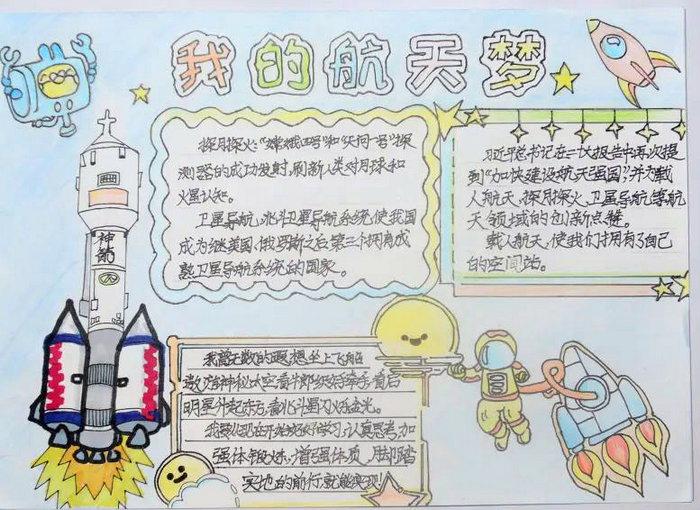 我的航天梦
探月探火:"嫦娥四号"和"天问一号"探
测器的成功发射,刷新人类对月球和
火星认知。
卫星导航,北斗卫星导航系统使我国
成为继美国、俄罗斯之后第三个拥有成
熟卫星导航系统的国家。
习近平总书记在二十大报告中再次提
到"加快建设航天强国",并为载
人航天、探月探火、卫星导航等航
天领域的创新点赞。
载人航天,使我们拥有了自己
的空间站。
神箭
我有无数的遐想坐上飞船
遨游神秘太空看牛郎织女牵手看启
明星升起东方,看北斗星闪烁金光。
我要从现在开始好好学习,认真思考,加
强体锻炼,增强体质,脚踏
实地的前行,就能实现